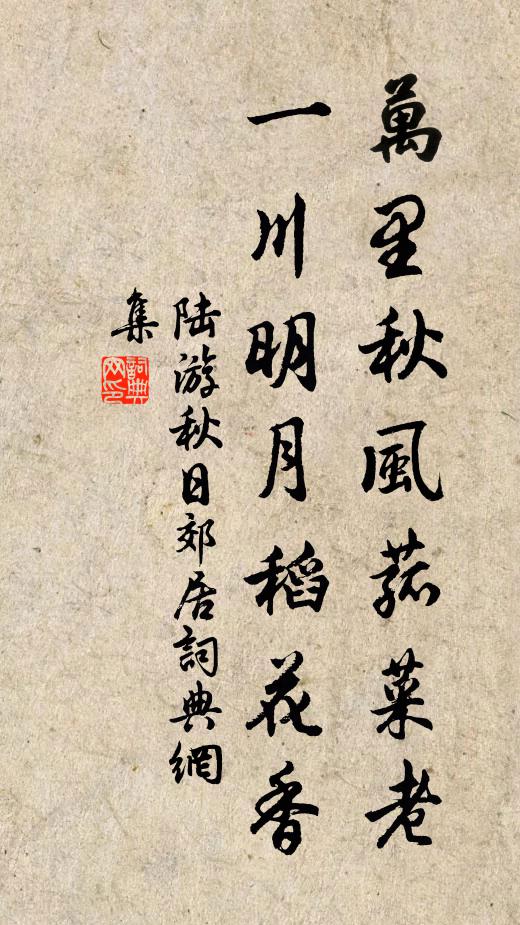 萬里秋風菰菜老
一川明月稻花香
陸游秋日郊居詞典網
集
詞典网印